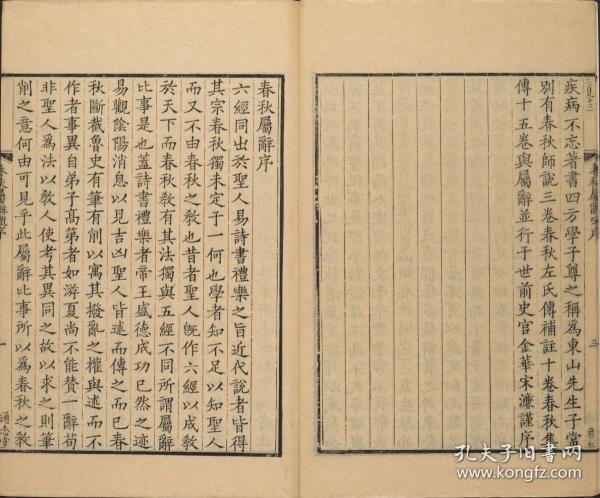 疾病不忘著書四方學子尊之稱為東山先生子常
別有春秋師說三卷春秋左氏傳補註十卷春秋集
傳十五卷與屬辭並行于世前史官金華宋濂謹序
三
春秋屬辭序
六經同出於聖人易詩書禮樂之旨近代說者皆得
其宗春秋獨未定于一何也學者知不足以知聖人
而又不由春秋之教也昔者聖人既作六經以成教
於天下而春秋教有其法獨與五經不同所謂屬辭
比事是也蓋詩書禮樂者帝王盛德成功已然之迹
易觀陰陽消息以見吉凶聖人皆述而傳之而已春
秋斷截魯史有筆有削以寓其撥亂之權與述而不
作者事異自弟子高第者如游夏尚不能贊一辭苟
非聖人為法以教人使考其異同之故以求之則筆
削之意何由可見乎此屬辭比事所以為春秋之教
一
通志堂
孔夫子旧书网
www.kongfz.com